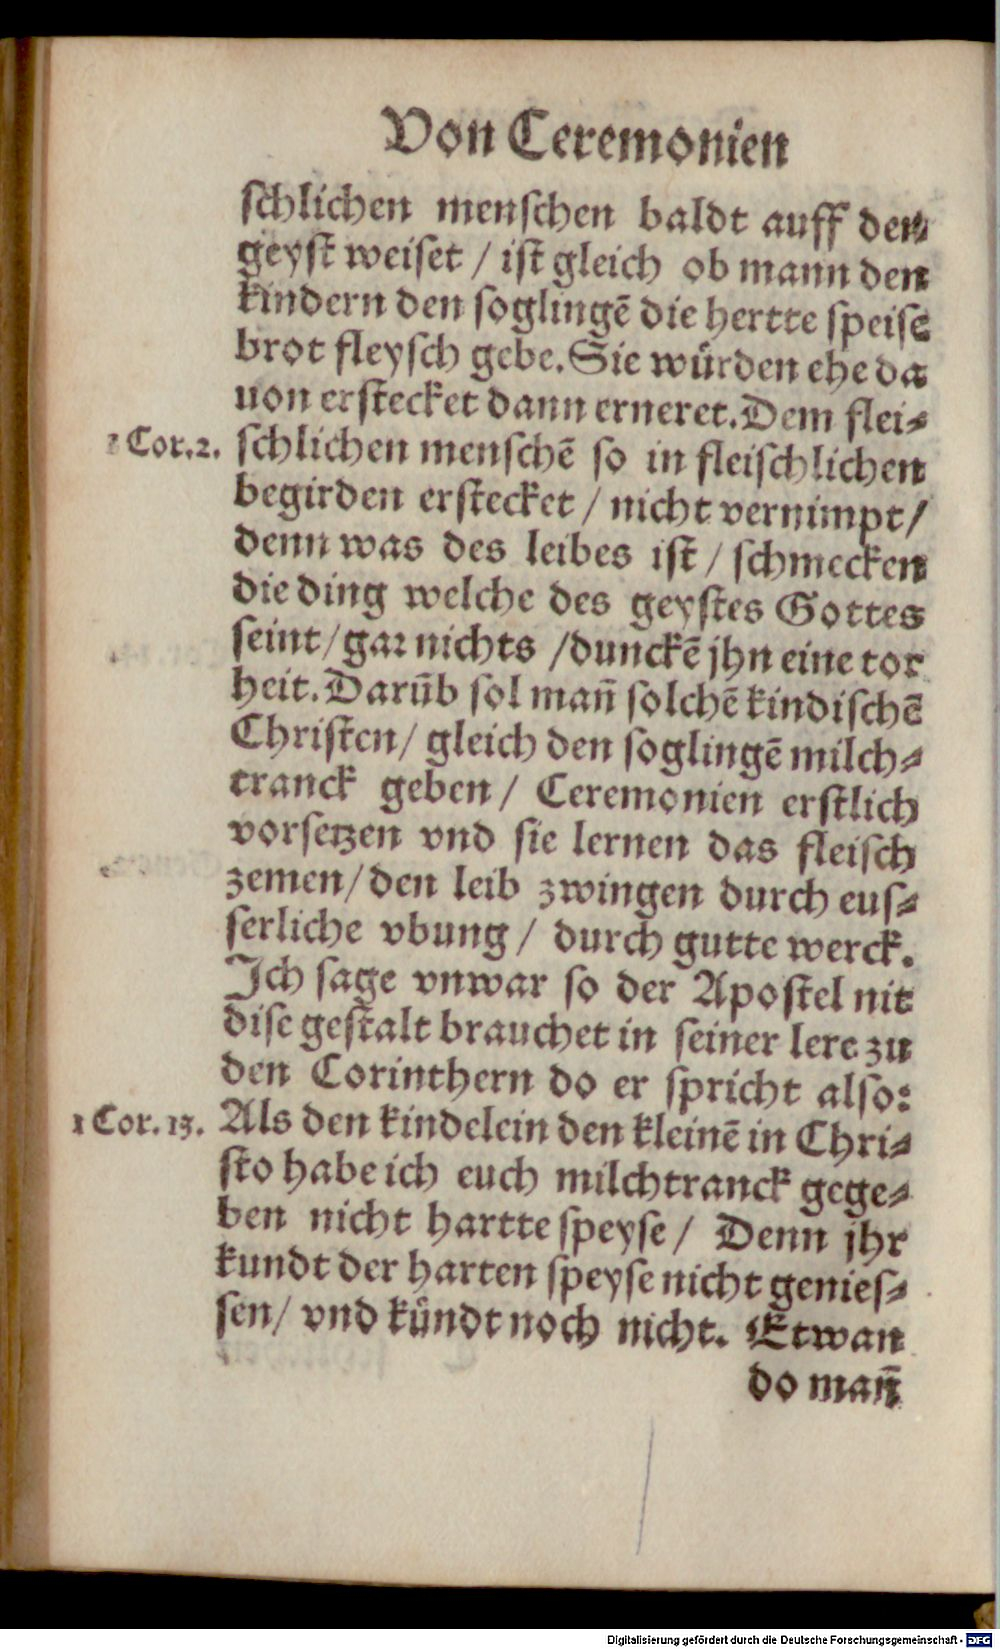 Von Ceremonien
ſchlichen menſchen baldt auff den
geyſt weiſet / iſt gleich ob mann den
kindern den ſoglingē die hertte ſpeiſe
brot fleyſch gebe. Sie würden ehe da
uon erſtecket dann erneret. Dem flei⸗
1 Cor. 2. ſchlichen menſchē ſo in fleiſchlichen
begirden erſtecket / nicht vernimpt /
denn was des leibes iſt / ſchmecken
die ding welche des geyſtes Gottes
ſeint / gar nichts / dunckē jhn eine tor
heit. Darūb ſol man̄ ſolchē kindiſchē
Chriſten / gleich den ſoglingē milch⸗
tranck geben / Ceremonien erſtlich
vorſetzen vnd ſie lernen das fleiſch
zemen / den leib zwingen durch euſ⸗
ſerliche vbung / durch gutte werck.
Ich ſage vnwar ſo der Apoſtel nit
diſe geſtalt brauchet in ſeiner lere zu
den Corinthern do er ſpricht alſo:
1 Cor. 13. Als den kindelein den kleinē in Chri⸗
ſto habe ich euch milchtranck gege⸗
ben nicht hartte ſpeyſe / Denn jhr
kundt der harten ſpeyſe nicht genieſ⸗
ſen / vnd kündt noch nicht. Etwan
do man̄
Digitalisierung gefördert durch die Deutsche Forschungsgemeinschaft - DFG